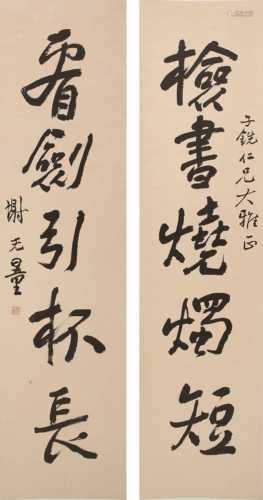 檢書燒燭短
子銑仁兄大雅正
看劍引杯長
謝无量